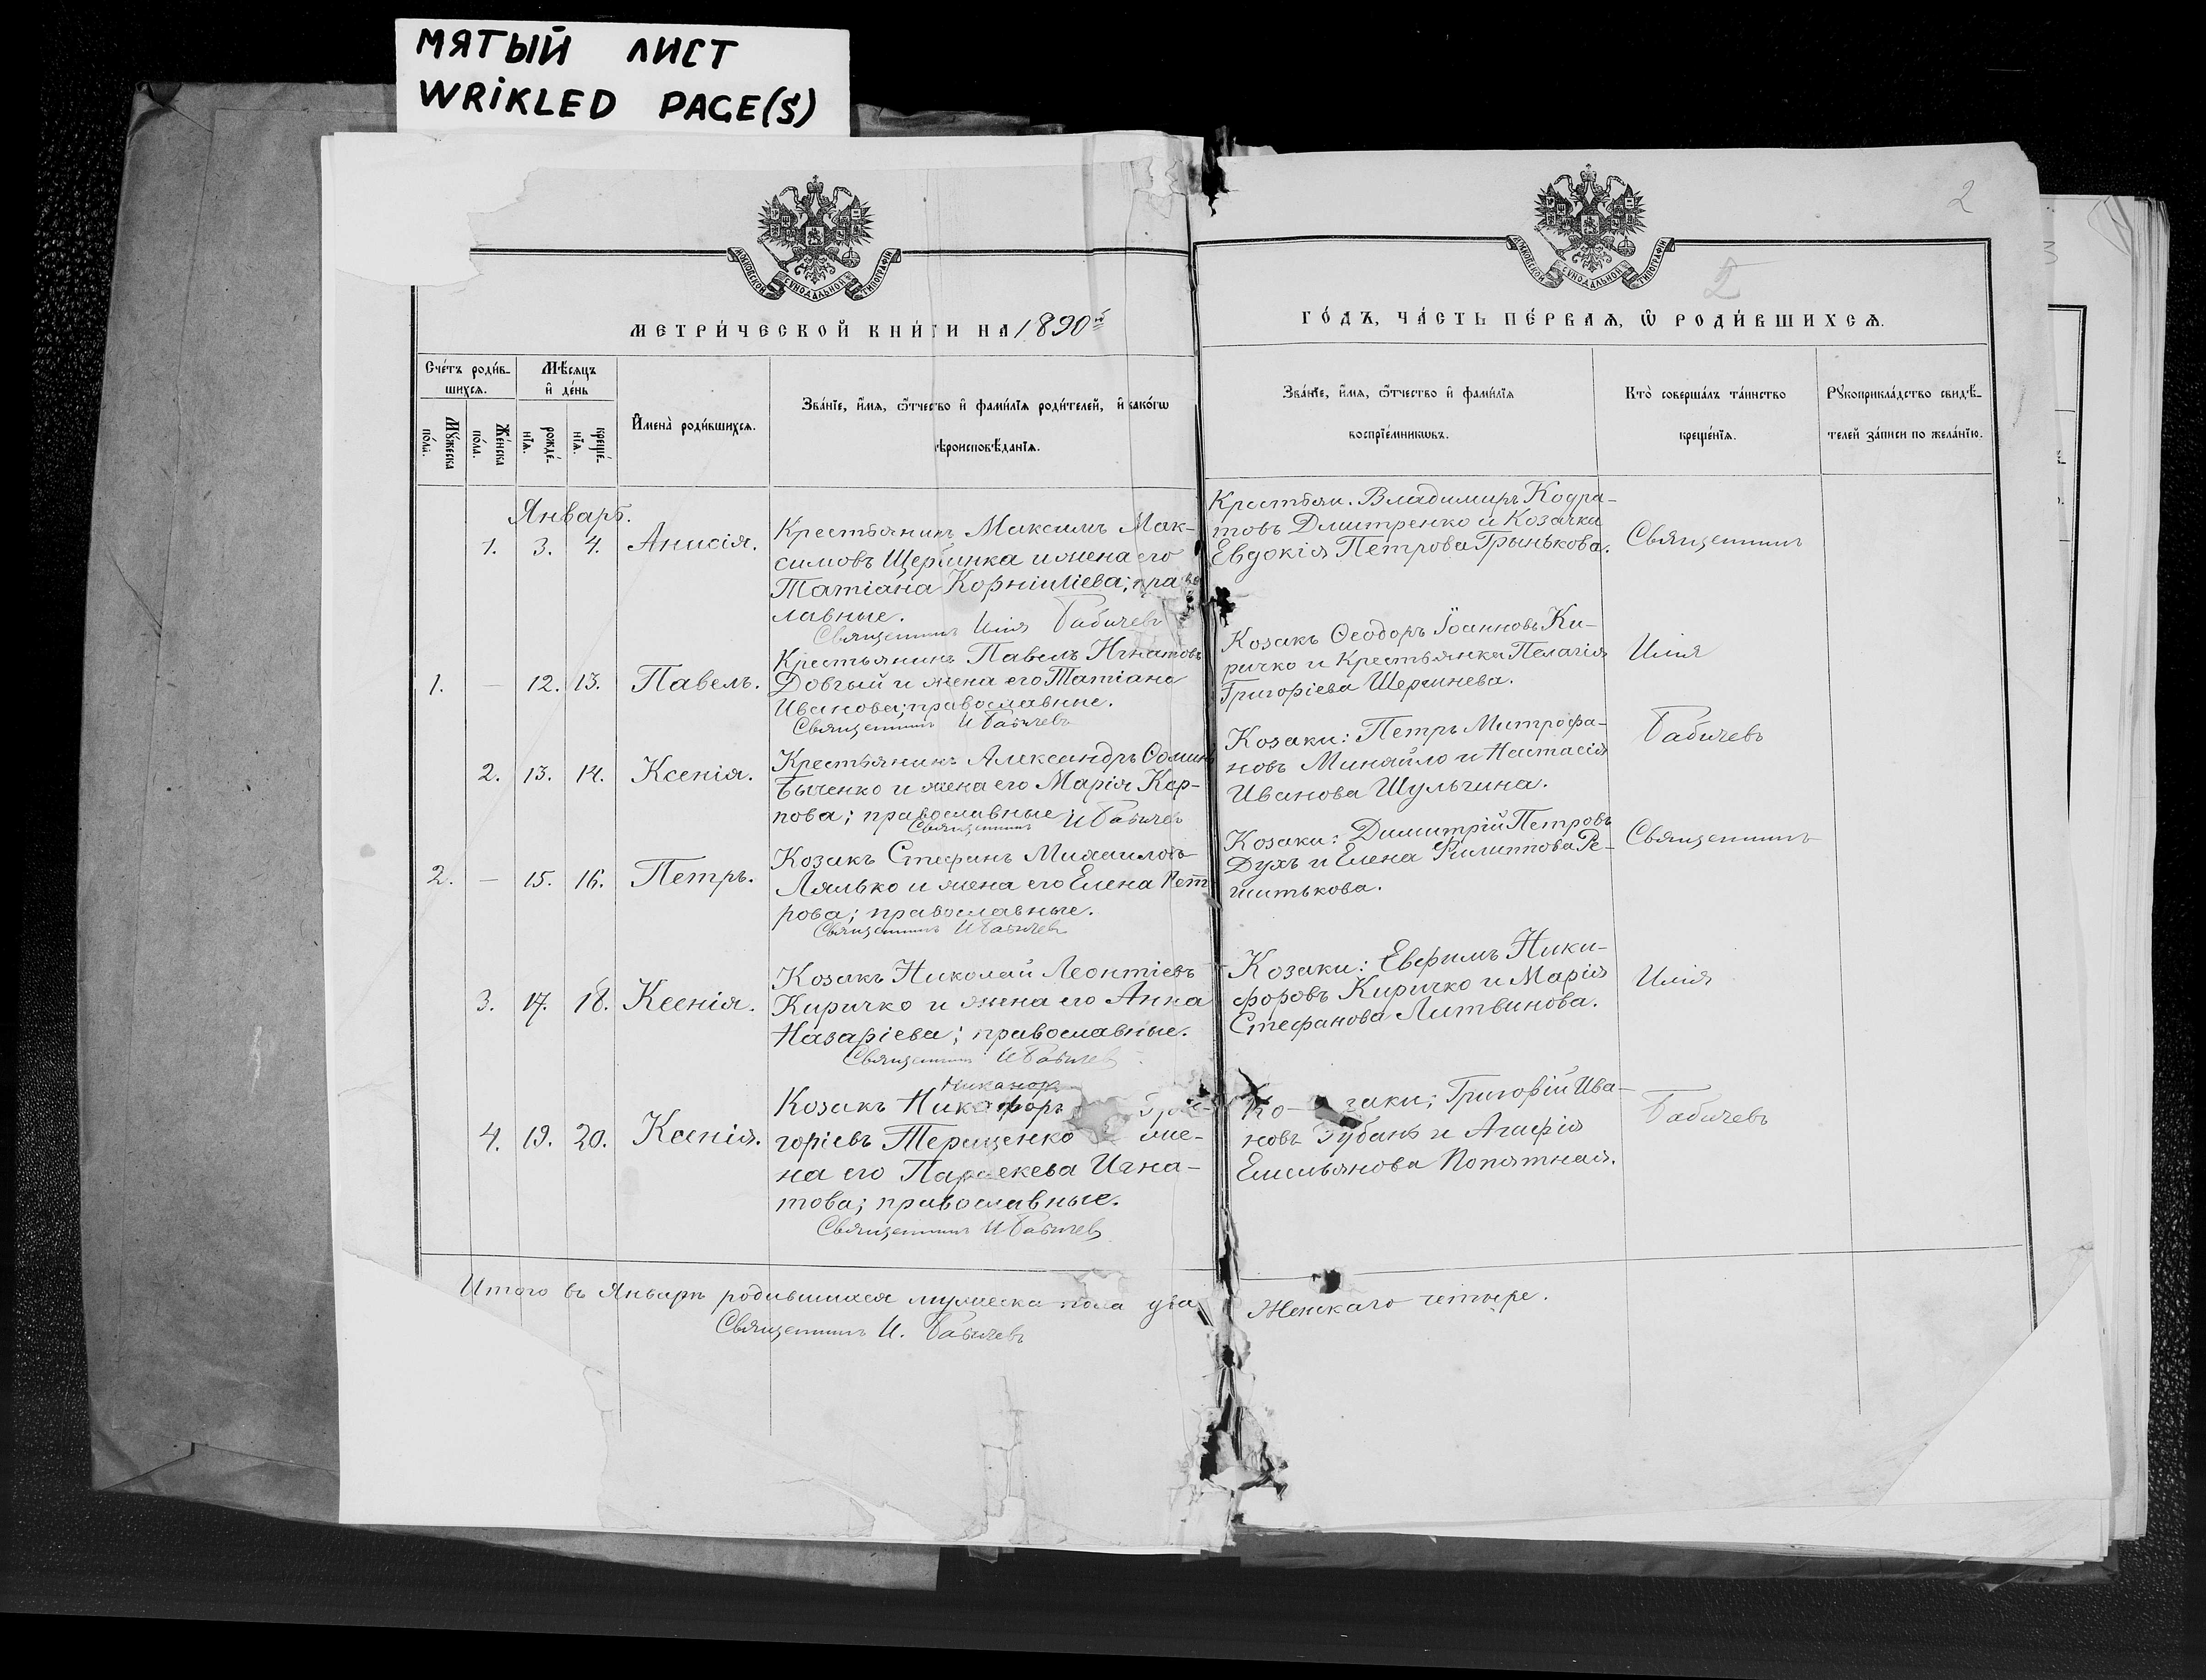 МЯТЫЙ ЛИСТ
WRIKLED PAGE(S)
2
2
МОСКОВСКОЙ СѴНОДАЛЬНОЙ ТИПОГРАФІИ
МОСКОВСКОЙ СѴНОДАЛЬНОЙ ТИПОГРАФІИ
МЕТРИ́ЧЕСКОЙ КНИ́ГИ НА 1890й
ГО́ДЪ, ЧА́СТЬ ПЕ́РВАѦ, Ѡ РОДИ́ВШИХСѦ.
Сче́тъ роди́в-
шихсѧ.
Мѣ́сѧцъ
и҆ де́нь
Мꙋ́жеска
по́ла.
Же́нска
по́ла.
рожде́-
нїѧ.
креще́-
нїѧ.
И҆мена̀ роди́вшихсѧ.
Зва́нїе, и҆́мѧ, ѻ҆́тчество и҆ фами́лїѧ роди́телей, и҆ како́гѡ
вѣроисповѣ́данїѧ.
Зва́нїе, и҆́мѧ, ѻ҆́тчество и҆ фами́лїѧ
воспрїе́мникѡвъ.
Кто̀ соверша́лъ та́инство
креще́нїѧ.
Рꙋкоприкла́дство свидѣ́-
телей за́писи по жела́нїю.
Январь.
1. 3. 4. Анисія.
Крестьянинъ Максимъ Мак-
симовъ Щербинка и жена его
Татіана Корниліева; право
лавные.
Священникъ Илія Бабичевъ
Крестьян. Владиміръ Кодра-
товъ Дмитренко и Козачка
Евдокія Петрова Грынькова.
Священникъ
1. — 12. 13. Павелъ.
Крестьянинъ Павелъ Игнатовъ
Довгый и жена его Татіана
Иванова; православные.
Священникъ И Бабичевъ
Козакъ Ѳеодоръ Іоанновъ Ки-
ричко и Крестьянка Пелагія
Григоріева Шерешнева.
Илія
2. 13. 14. Ксенія.
Крестьянинъ Александръ Ѳоминъ
Быченко и жена его Марія Кар-
пова; православные
Священникъ И Бабичевъ
Козаки: Петръ Митрофа-
новъ Минайло и Настасія
Иванова Шульгина.
Бабичевъ
2. — 15. 16. Петръ.
Козакъ Стефанъ Михаиловъ
Лялько и жена его Елена Пет
рова; православные.
Священникъ И Бабичевъ
Козаки: Димитрій Петровъ
Духъ и Елена Филиппова Ре-
шитькова.
Священникъ
3. 17. 18. Ксенія.
Козакъ Николай Леонтіевъ
Киричко и жена его Анна
Назаріева; православные.
Священникъ И Бабичевъ
Козаки: Евфимъ Ники-
форовъ Киричко и Марія
Стефанова Литвинова.
Илія
4. 19. 20. Ксенія.
Никаноръ
Козакъ Никифоръ Гри-
горіевъ Терещенко же-
на его Параскева Игна-
това; православные.
Священникъ И Бабичевъ
Ко- заки; Григорій Ива-
новъ Губань и Агафія
Емельянова Попятная.
Бабичевъ
Итого въ Январѣ родившихся мужеска пола два
Женскаго четыре.
Священникъ И. Бабичевъ